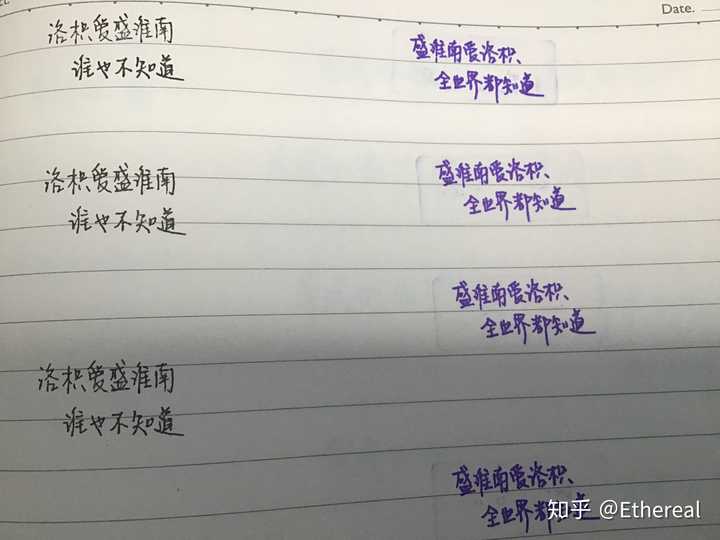 Date.
洛枳爱盛淮南
谁也不知道
盛淮南爱洛枳、
全世界都知道
洛枳爱盛淮南
谁也不知道
盛淮南爱洛枳、
全世界都知道
盛淮南爱洛枳、
全世界都知道
洛枳爱盛淮南
谁也不知道
盛淮南爱洛枳、
全世界都知道
知乎 @Ethereal